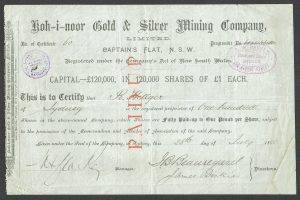 Koh-i-noor Gold & Silver Mining Company,
LIMITED.
No. of Certificate 60
Progressive No.
CAPTAIN'S FLAT, N.S.W.
Registered under the Company's Act of New South Wales
CAPITAL—£120,000, IN 120,000 SHARES OF £1 EACH.
This is to Certify that
of Sydney is the registered proprietor of One hundred
Shares in the above-named Company, which Shares are Fully Paid-up to One Pound per Share, subject
to the provisions of the Memorandum and Articles of Association of the said Company.
Given under the Seal of the Company, at Sydney, this 28th day of July
Manager.
Directors.